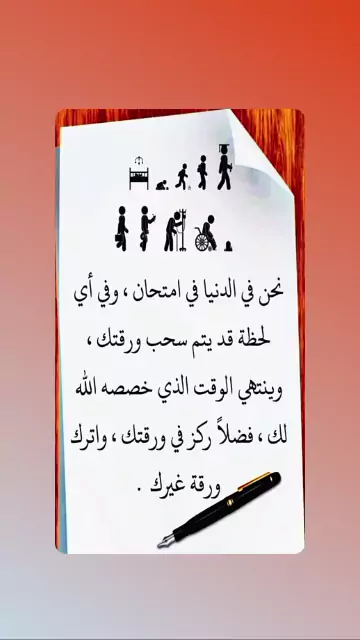 نحن في الدنيا في امتحان ، وفي أي
لحظة قد يتم سحب ورقتك ،
وينتهي الوقت الذي خصصه الله
لك ، فضلاً ركز في ورقتك ، واترك
ورقة غيرك .